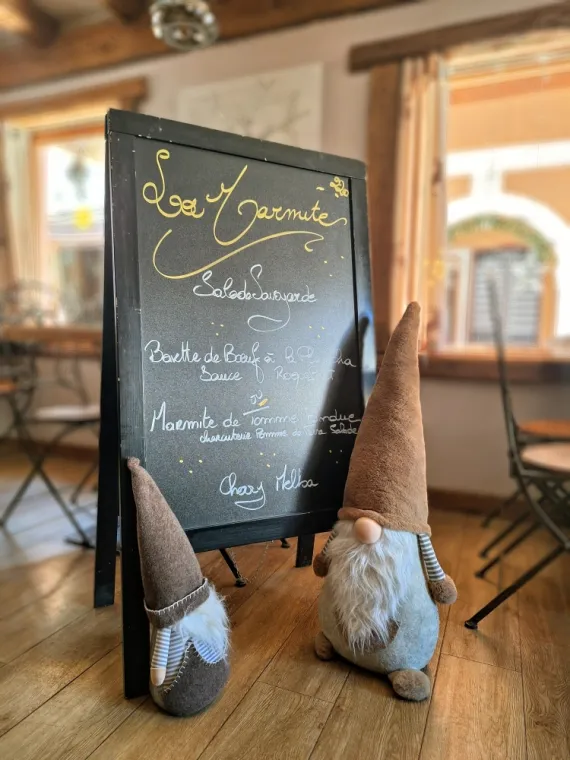 La Marmite
Salade Savoyarde
Bavette de Bœuf à la Plancha
Sauce Roquefort
ou
Marmite de Tomme Fondue
charcuterie Pomme de Terre Salade
Chazy Melba